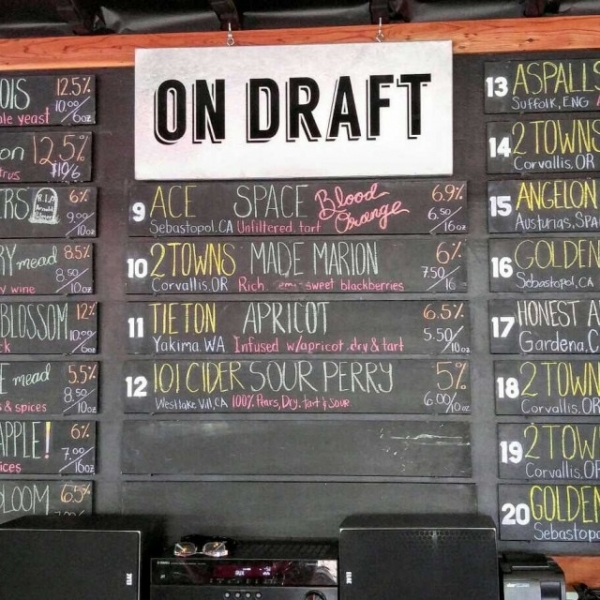 ON DRAFT
OIS 12.5%
le yeast 10.00/6oz
on 12.5%
trus $10/6
ERS R.I.P. 6%
9.00/10oz
RY mead 8.5%
y wine 8.50/10oz
BLOSSOM 12%
ck 10.00/6oz
E mead 5.5%
s & spices 8.50/10oz
APPLE! 6%
ices 7.00/16oz
LOOM 6.5%
9 ACE SPACE Blood Orange 6.9%
Sebastopol, CA Unfiltered, tart 6.50/16oz
10 2 TOWNS MADE MARION 6%
Corvallis, OR Rich sweet blackberries 7.50/16
11 TIETON APRICOT 6.5%
Yakima, WA Infused w/apricot, dry & tart 5.50/10oz
12 101 CIDER SOUR PERRY 5%
Westlake Vill, CA 100% Pears, Dry, tart & Sour 6.00/10oz
13 ASPALLS
Suffolk, ENG
14 2 TOWNS
Corvallis, OR
15 ANGELON
Austurias, SPA
16 GOLDEN
Sebastopol, CA
17 HONEST A
Gardena, C
18 2 TOWN
Corvallis, OR
19 2 TOWN
Corvallis, OR
20 GOLDEN
Sebastopo